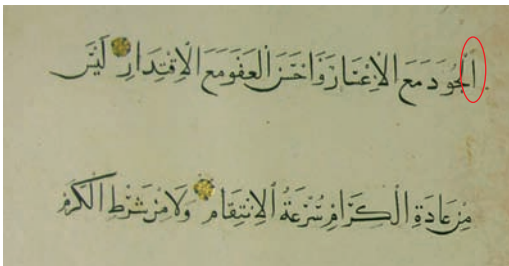 اَلْجُودَ مَعَ الْاِعْسَارِ وَاَحْسَنَ الْعَفْوَ مَعَ الْاِقْتِدَارِ لَيْسَ
مِنْ عَادَةِ الْكِرَامِ سُرْعَةُ الْاِنْتِقَامِ وَلَا مِنْ شَرْطِ الْكَرَمِ